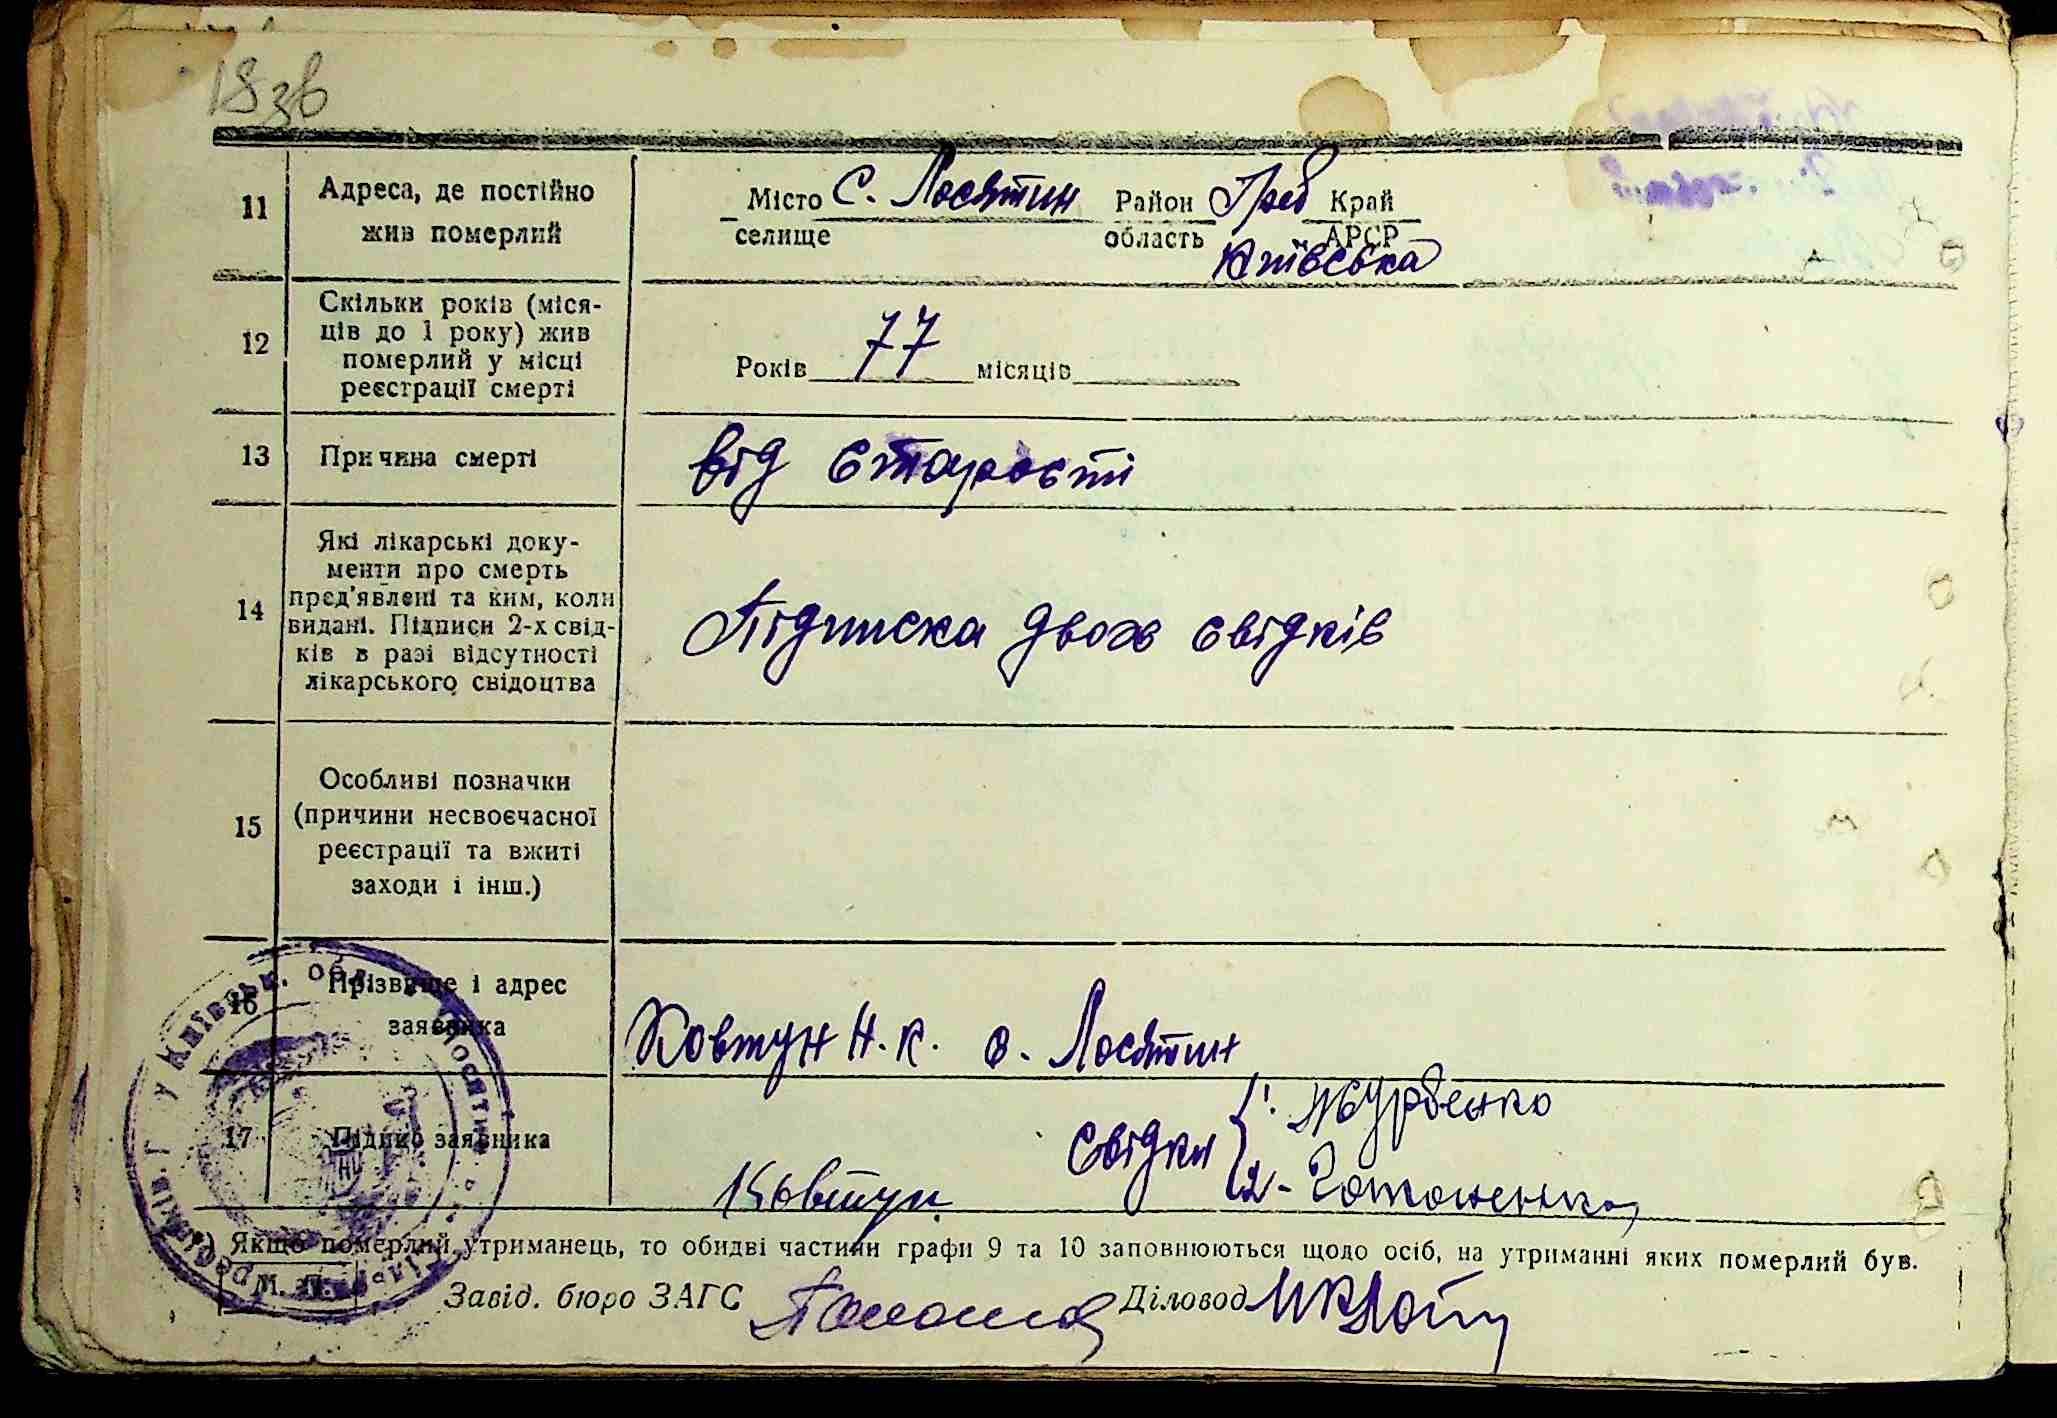 18зв
11
Адреса, де постійно
жив померлий
Місто С. Лосятин Район Греб Край
селище область АРСР
Київська
12
Скільки років (міся-
ців до 1 року) жив
померлий у місці
реєстрації смерті
Років 77 місяців
13
Причина смерті
від старости
14
Які лікарські доку-
менти про смерть
пред'явлені та ким, коли
видані. Підписи 2-х свід-
ків в разі відсутності
лікарського свідоцтва
Підписка двох свідків
15
Особливі позначки
(причини несвоєчасної
реєстрації та вжиті
заходи і інш.)
16
Прізвище і адрес
заявника
Ковтун Н.К. с. Лосятин
17
Підпис заявника
Ковтун
Свідки
1. Журбенко
2-
*) Якщо померлий утриманець, то обидві частини графи 9 та 10 заповнюються щодо осіб, на утриманні яких померлий був.
М. П.
Завід. бюро ЗАГС
Діловод